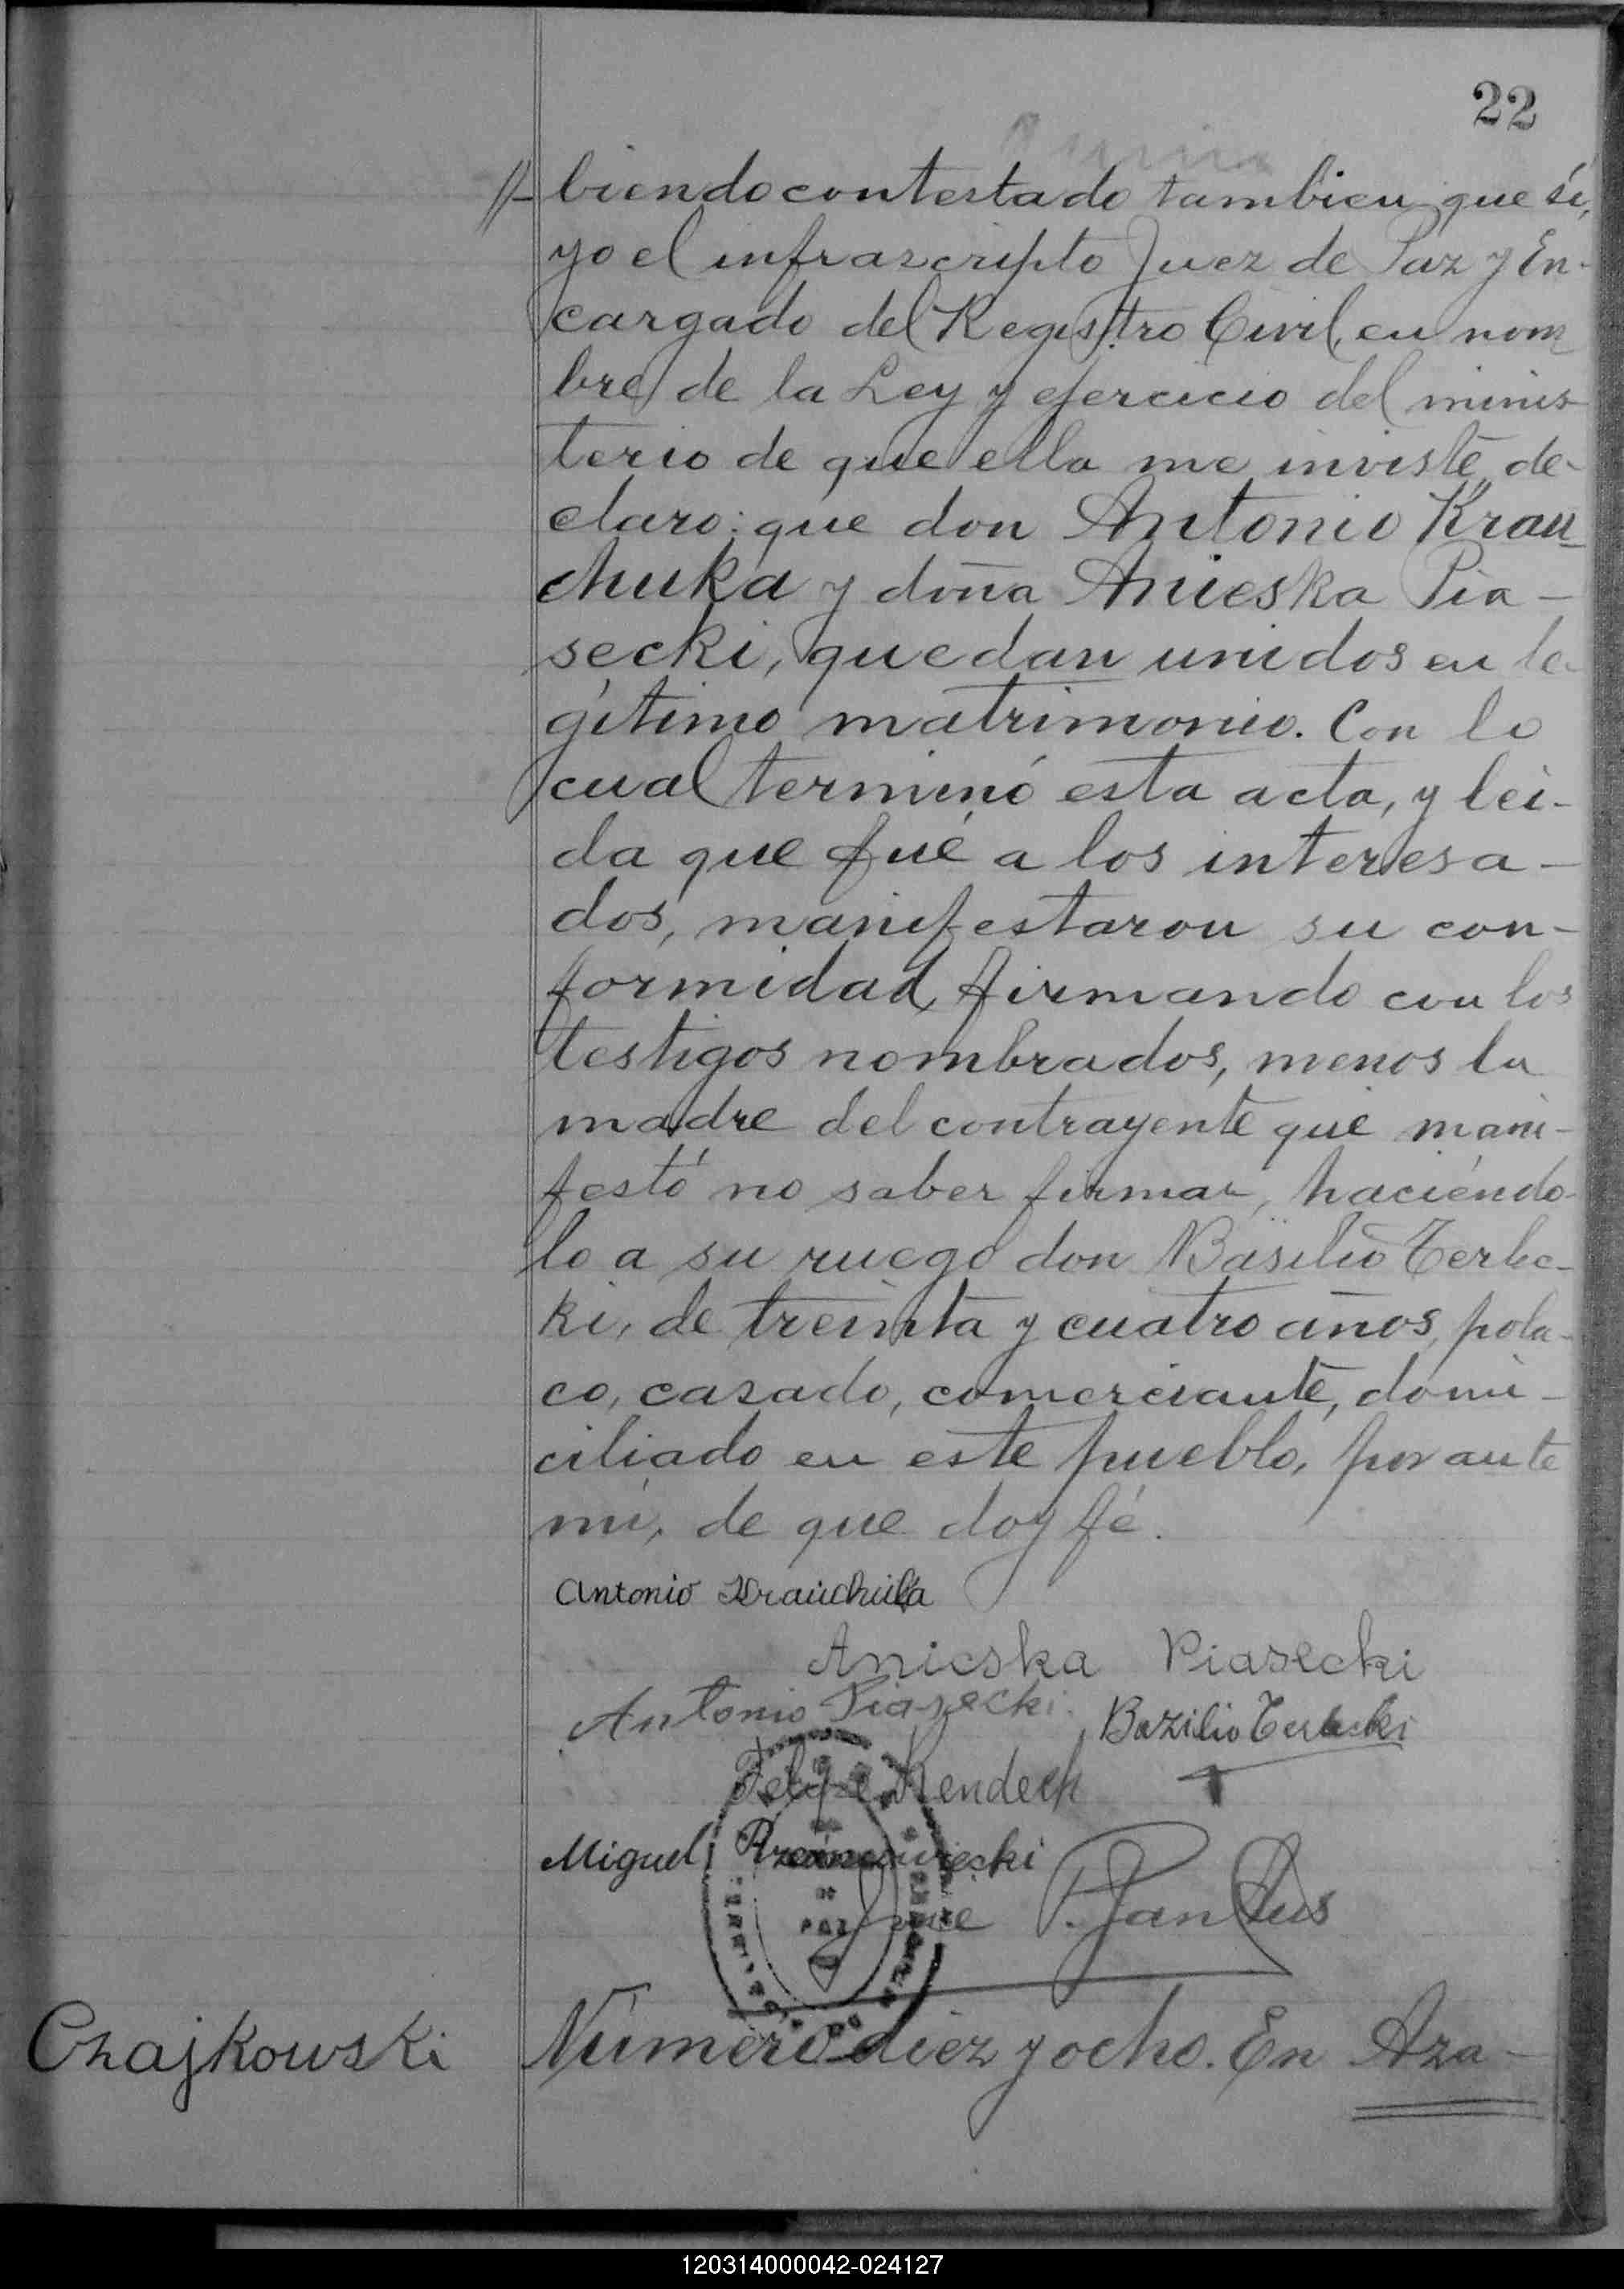 22
//- biendo contestado tambien que sí,
yo el infrascripto Juez de Paz y En-
cargado del Registro Civil, en nom
bre de la Ley y ejercicio del minis-
terio de que ella me inviste, de-
claro: que don Antonio Krau-
chuka y doña Anieska Pia-
secki, quedan unidos en le
gítimo matrimonio. Con lo
cual terminó esta acta, y lei-
da que fué a los interesa-
dos, manifestaron su con-
formidad, firmando con los
testigos nombrados, menos la
madre del contrayente que mani-
festó no saber firmar, haciéndo-
lo a su ruego don Basilio Terlec-
ki, de treinta y cuatro años, pola-
co, casado, comerciante, domi-
ciliado en este pueblo, por ante
mí, de que doy fé.
Antonio Krauchuka
Anieska Piasecki
Antonio Piasecki. Bazilio Terlecki
Felipe
Miguel
PAZ
Czajkowski Número diez y ocho. En Aza-
120314000042-024127